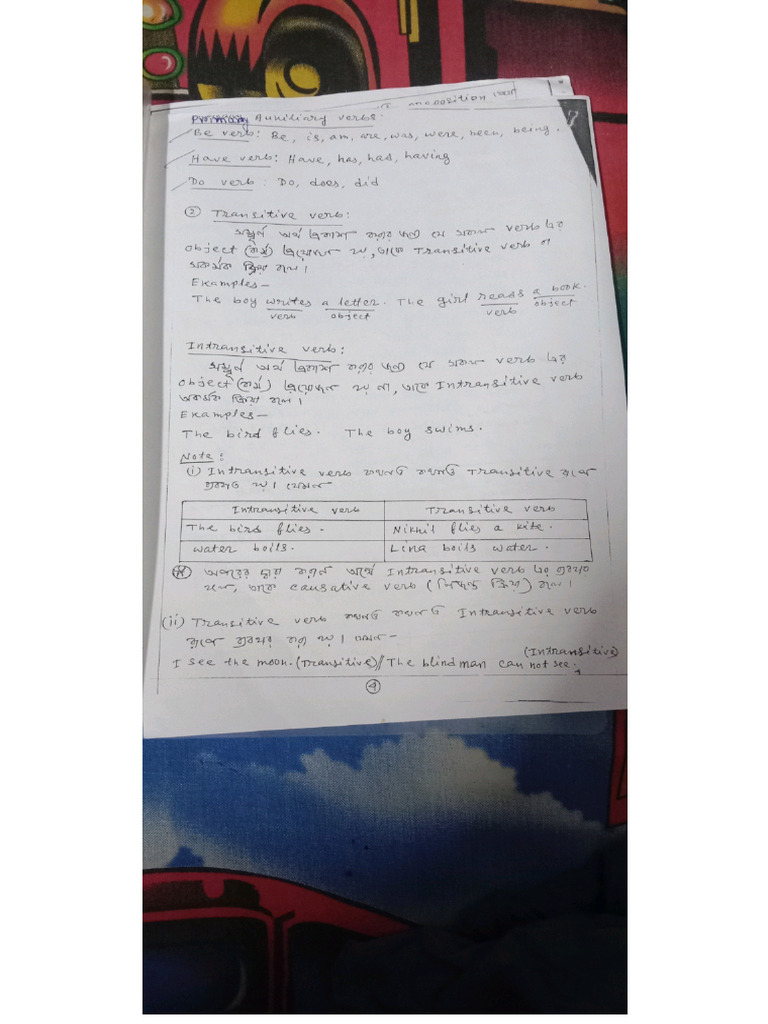 preposition
Auxiliary verbs:
Be verb: Be, is, am, are, was, were, been, being.
Have verb: Have, has, had, having
Do verb : Do, does, did
② Transitive verb:
সম্পূর্ণ অর্থ প্রকাশ করার জন্য যে সকল verb এর
object (কর্ম) প্রয়োজন হয়, তাকে Transitive verb বা
সকর্মক ক্রিয়া বলে।
Examples—
The boy writes a letter. The girl reads a book.
verb object verb object
Intransitive verb:
সম্পূর্ণ অর্থ প্রকাশ করার জন্য যে সকল verb এর
object (কর্ম) প্রয়োজন হয় না, তাকে Intransitive verb
অকর্মক ক্রিয়া বলে।
Examples—
The bird flies. The boy swims.
Note:
(i) Intransitive verb কখনও কখনও Transitive রূপে
ব্যবহৃত হয়। যেমন
Intransitive verb Transitive verb
The bird flies. Nikhil flies a kite.
Water boils. Lina boils water.
অপরের দ্বারা করান অর্থে Intransitive verb এর প্রয়োগ
হলে, তাকে causative verb (নিজন্ত ক্রিয়া) বলে।
(ii) Transitive verb কখনও কখনও Intransitive verb
রূপে ব্যবহার করা হয়। যেমন—
(Intransitive)
I see the moon. (Transitive)// The blind man can not see.
④